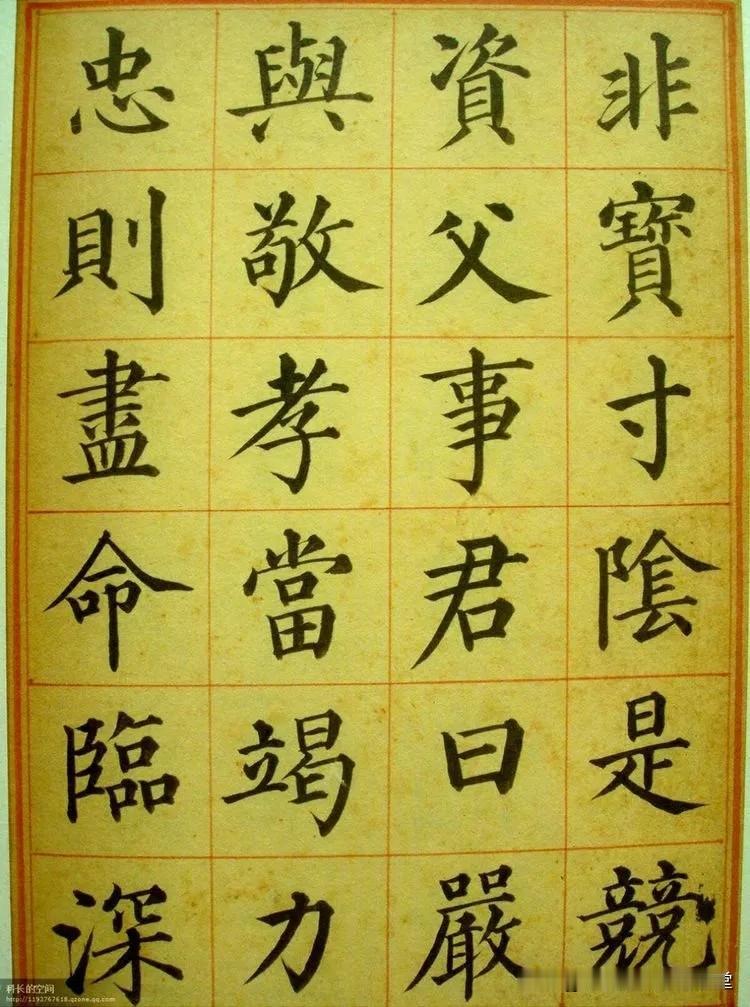 非寶寸陰是競
資父事君曰嚴
與敬孝當竭力
忠則盡命臨深
科长的空间
http://1193767618.qzone.qq.com